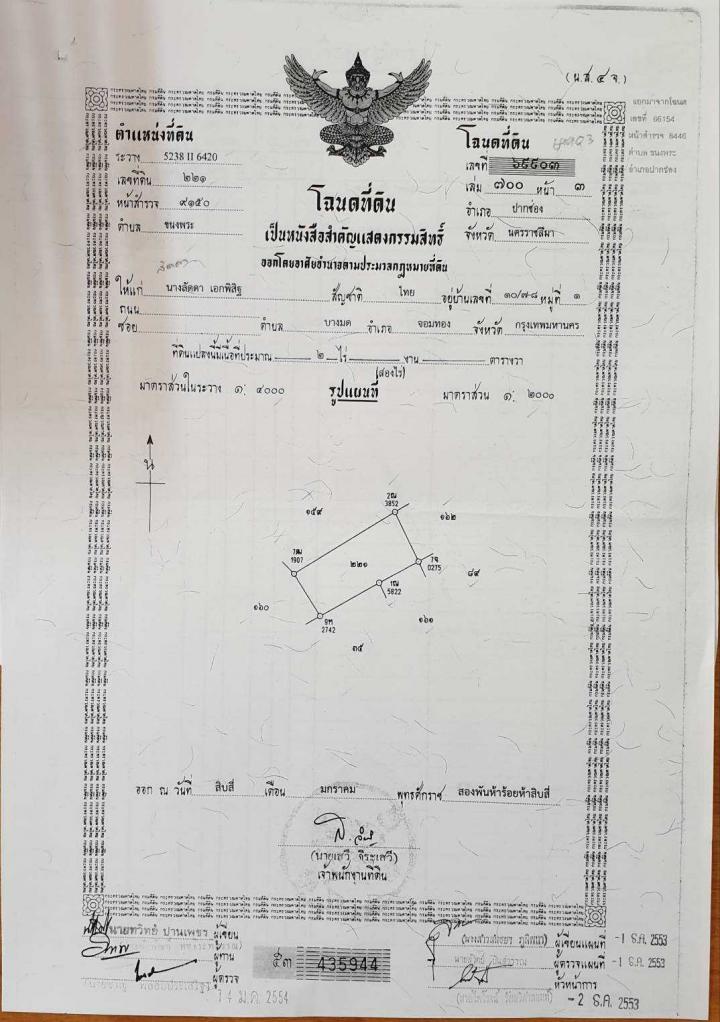 (น.ส.๔ จ.)
แยกมาจากโฉนด
เลขที่ 66154
หน้าสำรวจ 8446
ตำบล ขนงพระ
อำเภอปากช่อง
ตำแหน่งที่ดิน
ระวาง 5238 II 6420
เลขที่ดิน ๒๒๑
หน้าสำรวจ ๙๑๕๐
ตำบล ขนงพระ
โฉนดที่ดิน
เลขที่ ๖๖๙๐๓
เล่ม ๗๐๐ หน้า ๓
อำเภอ ปากช่อง
จังหวัด นครราชสีมา
โฉนดที่ดิน
เป็นหนังสือสำคัญแสดงกรรมสิทธิ์
ออกโดยอาศัยอำนาจตามประมวลกฎหมายที่ดิน
ลัดดา
ให้แก่ นางลัดดา เอกพิสิฐ สัญชาติ ไทย อยู่บ้านเลขที่ ๑๐/๗-๘ หมู่ที่ ๑
ถนน
ซอย ตำบล บางมด อำเภอ จอมทอง จังหวัด กรุงเทพมหานคร
ที่ดินแปลงนี้มีเนื้อที่ประมาณ ๒ ไร่ งาน ตารางวา
(สองไร่)
มาตราส่วนในระวาง ๑: ๔๐๐๐ รูปแผนที่ มาตราส่วน ๑: ๒๐๐๐
น
2ณ
3852
๑๕๙
๑๖๒
1907
๒๒๑
7จ
0275
๘๙
1ญ
5822
๑๖๐
2742
๑๖๑
๓๕
ออก ณ วันที่ สิบสี่ เดือน มกราคม พุทธศักราช สองพันห้าร้อยห้าสิบสี่
(นายเสวี จิระเสวี)
เจ้าพนักงานที่ดิน
นายทวิทย์ ปานเพชร ผู้เขียน
ผู้ทาน
ผู้ตรวจ
14 ม.ค. 2554
๕๓ 435944
ผู้เขียนแผนที่ -1 ธ.ค. 2553
ผู้ตรวจแผนที่ -1 ธ.ค. 2553
หัวหน้าการ
-2 ธ.ค. 2553